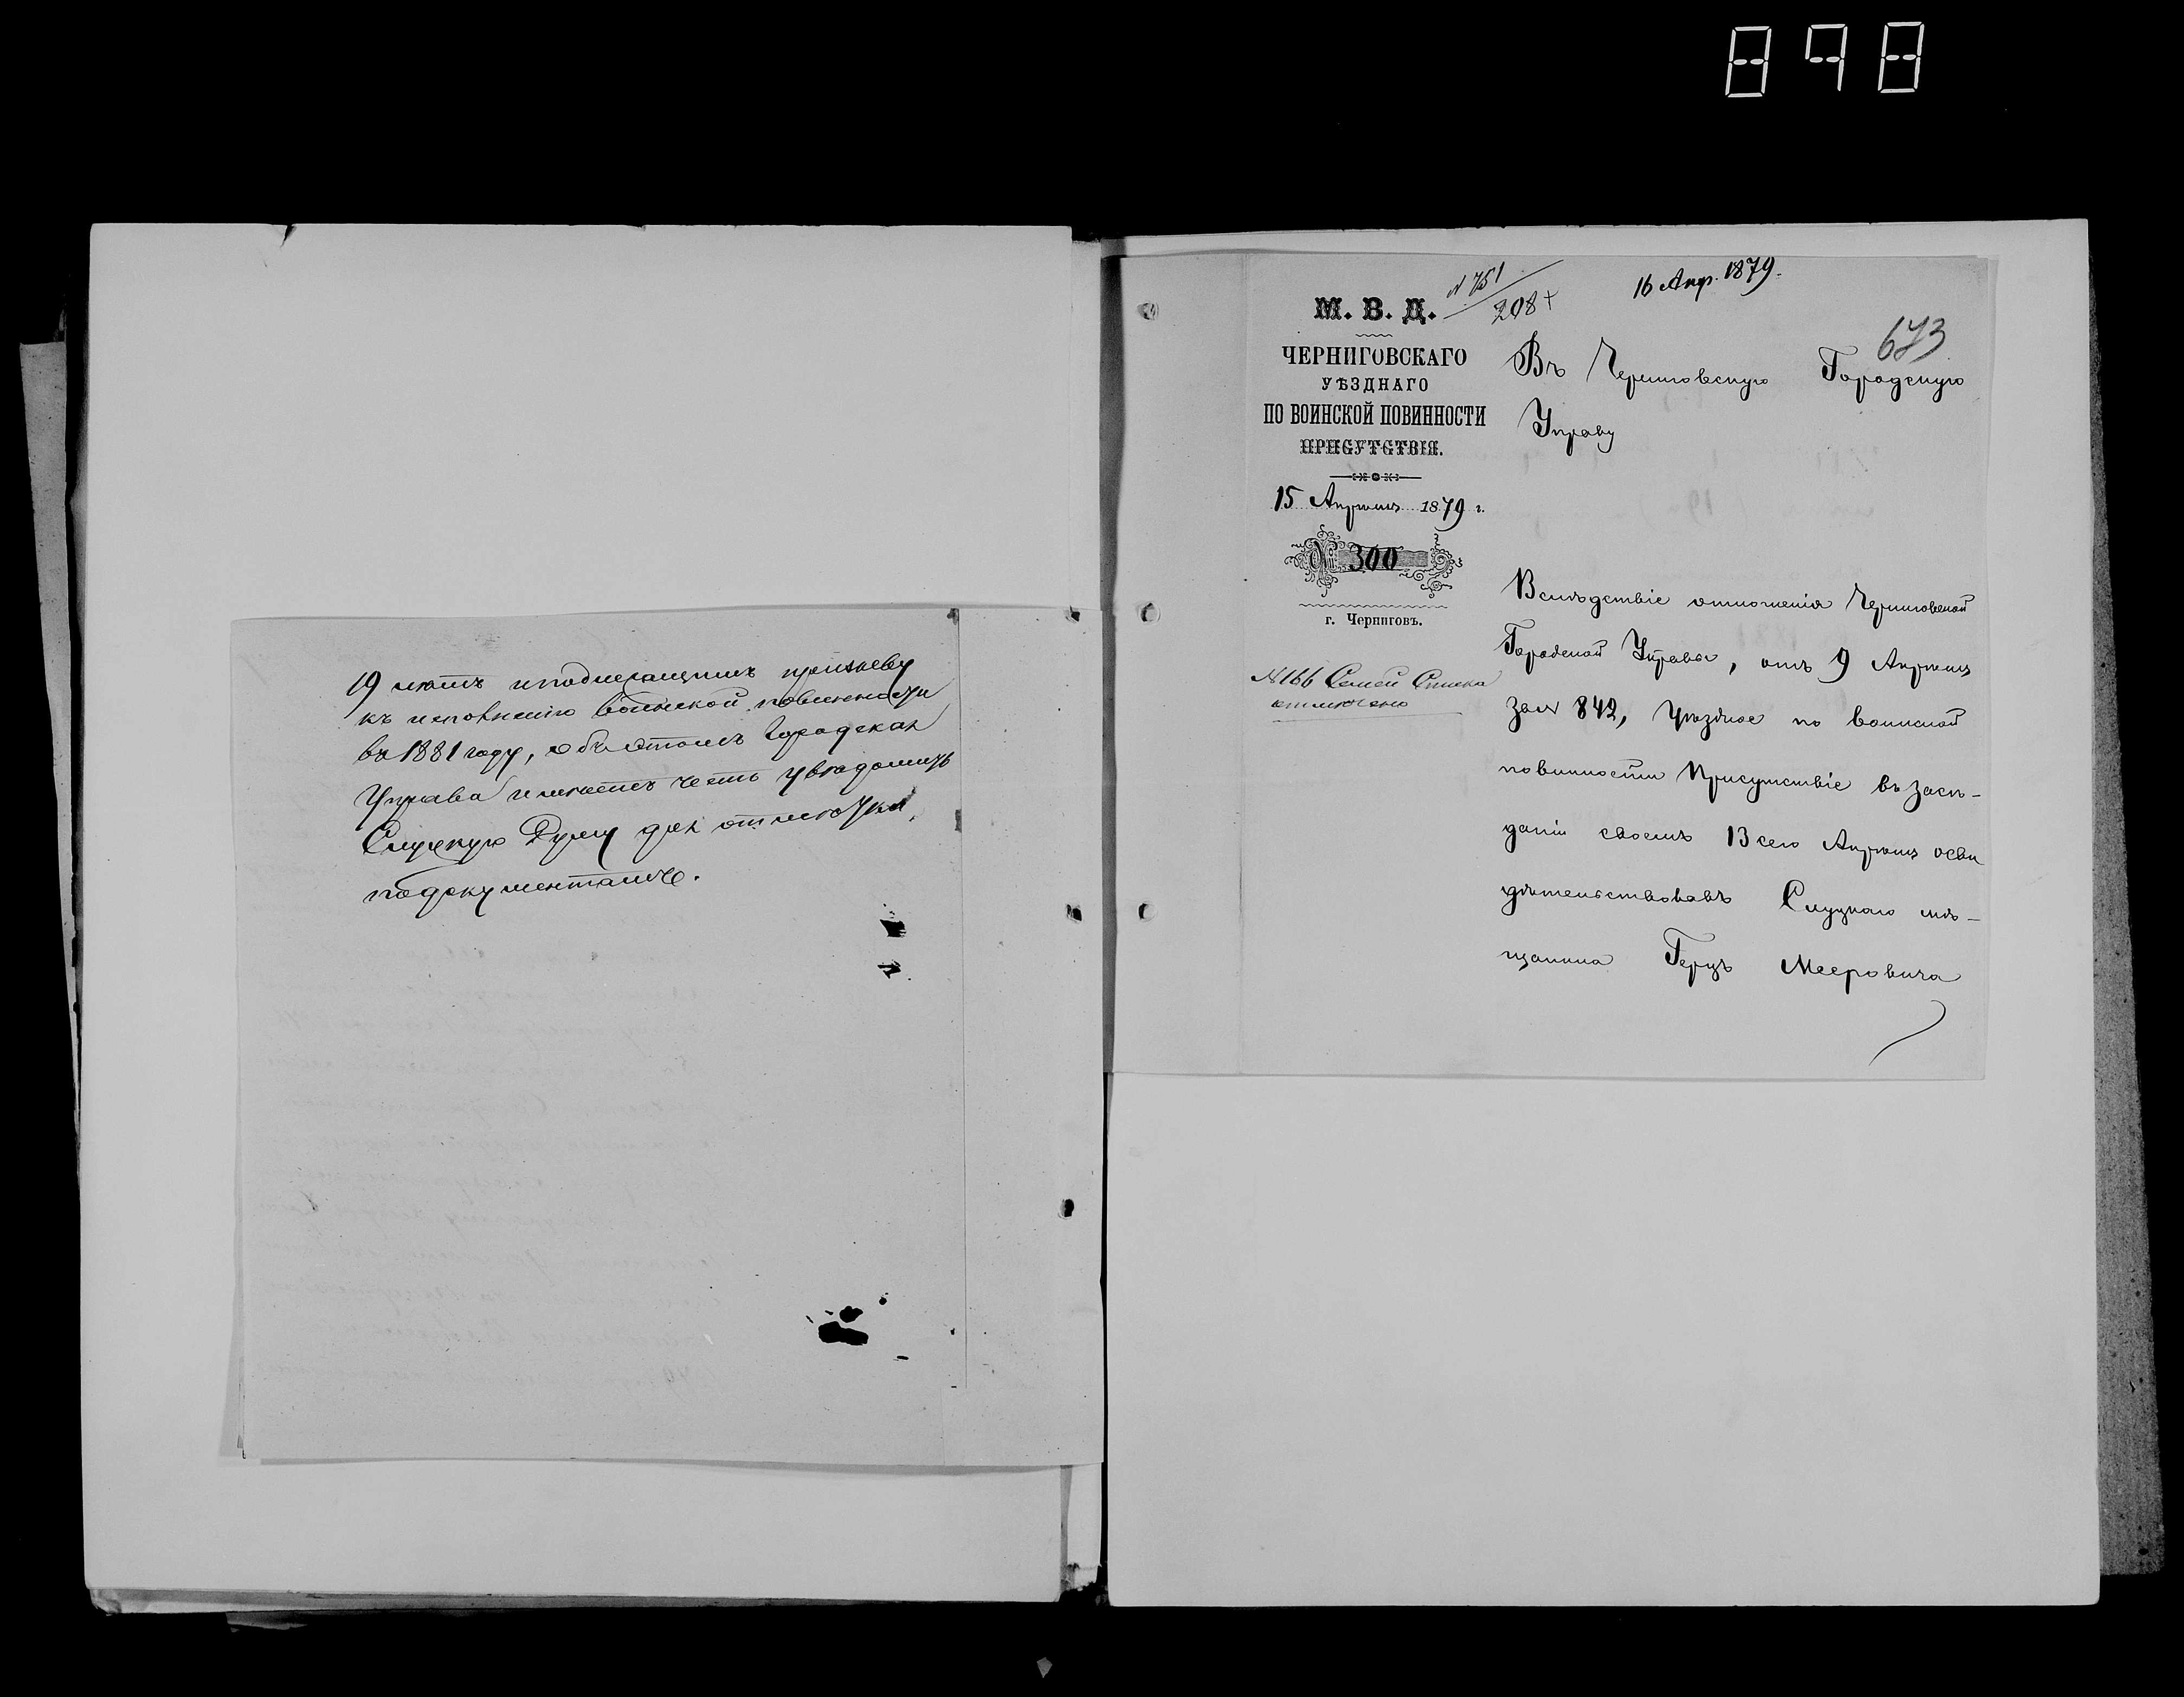 898
19 летъ и подлежащимъ призыву
къ исполненію воинской повинности
въ 1881 году, объ этомъ Городская
Управа имѣетъ честь увѣдомить
Слуцкую Думу для отмѣтки
по документамъ.
№ 751
208
16 Апр. 1879.
673
М. В. Д.
ЧЕРНИГОВСКАГО
УѢЗДНАГО
ПО ВОИНСКОЙ ПОВИННОСТИ
ПРИСУТСТВІЯ.
15 Апрѣля 1879 г.
№ 300
г. Черниговъ.
№ 166 Семей Списка
отмѣчено
Въ Черниговскую Городскую
Управу
Вслѣдствіе отношенія Черниговской
Городской Управы, отъ 9 Апрѣля
за № 842, Уѣздное по воинской
повинности Присутствіе въ засѣ-
даніи своемъ 13 сего Апрѣля осви
дѣтельствовавъ Слуцкаго мѣ-
щанина Герцъ Мееровича